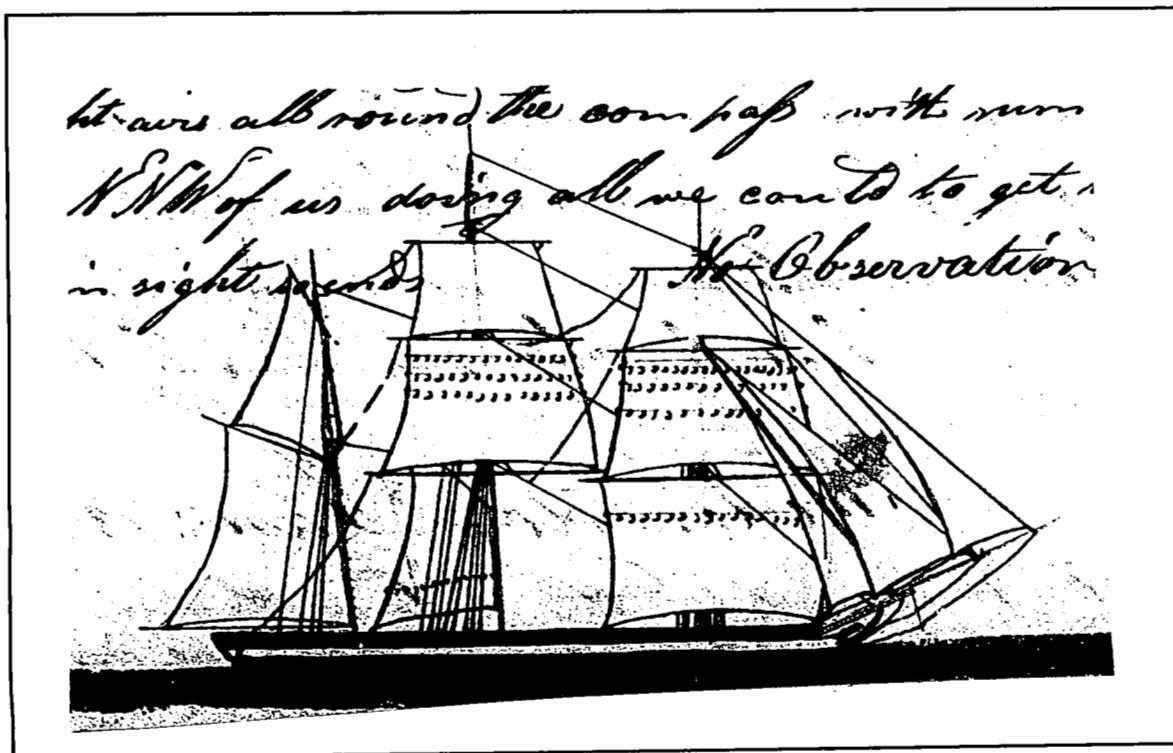 ht airs all round the compaſs with num
NNW of us doing all we could to get
in sight No Observation